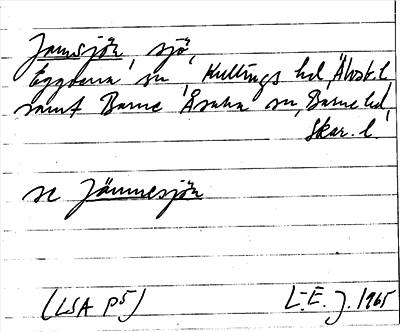 Jamsjön, sjö,
Eggvena sn, Kullings hd, Älvsb. l.
samt Barne Åsaka sn, Barne hd,
Skar. l.
se Jämmesjön
(LSA P5)
L-E. J. 1965